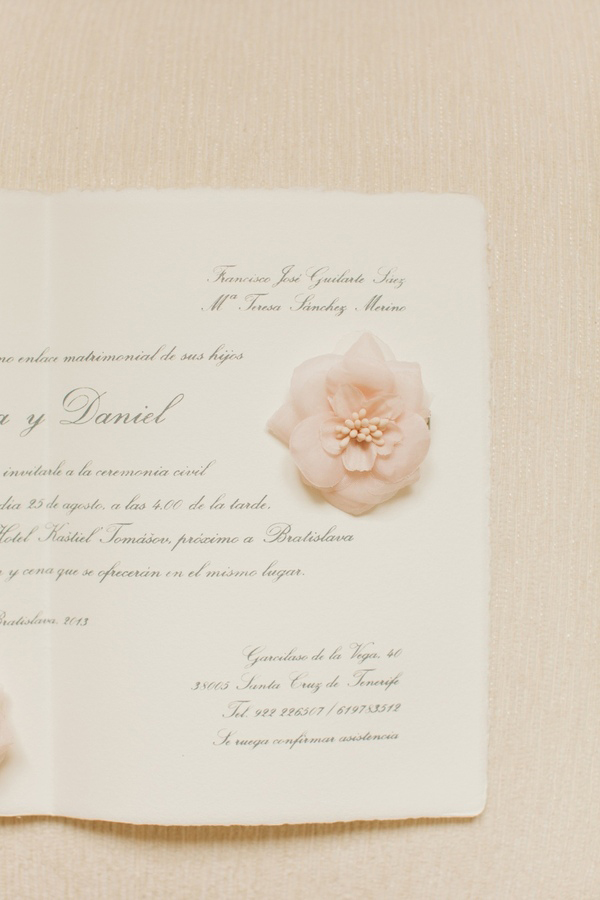 Francisco José Guilarte Sáez
Mª Teresa Sánchez Merino
no enlace matrimonial de sus hijos
a y Daniel
invitarle a la ceremonia civil
día 25 de agosto, a las 4,00 de la tarde,
Hotel Kaštiel Tomášov, próximo a Bratislava
y cena que se ofrecerán en el mismo lugar.
Bratislava, 2013
Garcilaso de la Vega, 40
38005 Santa Cruz de Tenerife
Tel. 922 226507 / 619783512
Se ruega confirmar asistencia